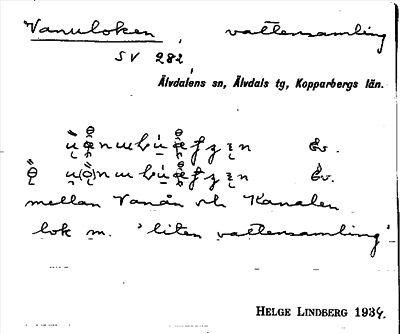 Vanuloken, vattensamling
SV 282,
Älvdalens sn, Älvdals tg, Kopparbergs län.
Ev.
Èv.
mellan Vanån och Kanalen
lok m. 'liten vattensamling'
HELGE LINDBERG 1934.